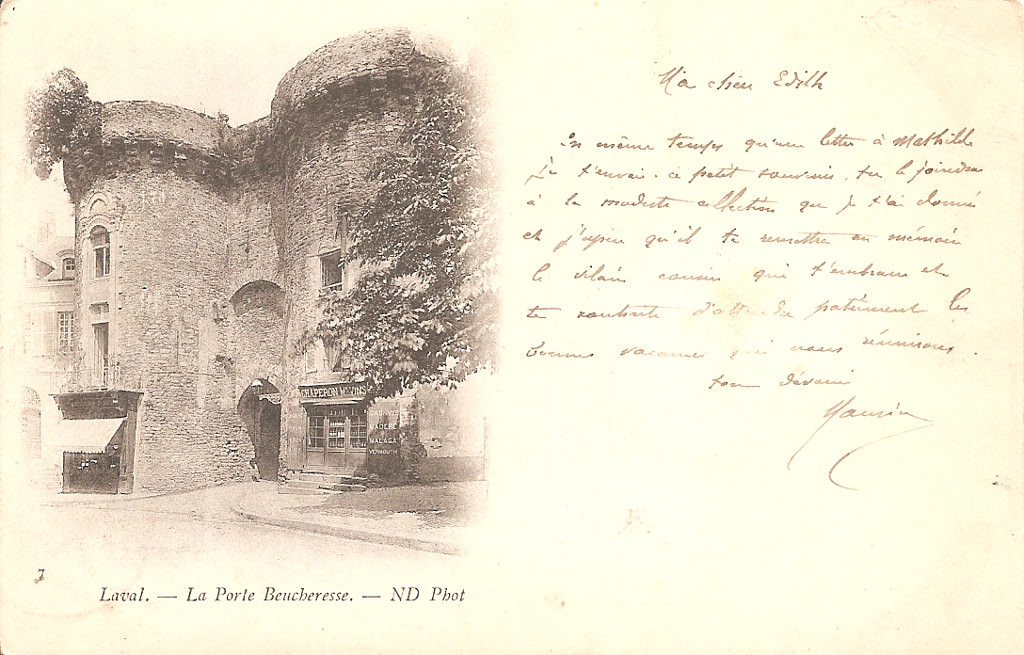 Ma chère Edith
En même temps qu'une lettre à Mathilde
je t'envoie ce petit souvenir, tu le joindras
à la modeste collection que je t'ai donné
et j'espère qu'il te remettra en mémoire
le vilain cousin qui t'embrasse et
te souhaite d'attendre patiemment les
bonnes vacances qui nous réunirons.
ton dévoué
Maurice
CHAPERON
MADÈRE
MALAGA
VERMOUTH
7
Laval. — La Porte Beucheresse. — ND Phot